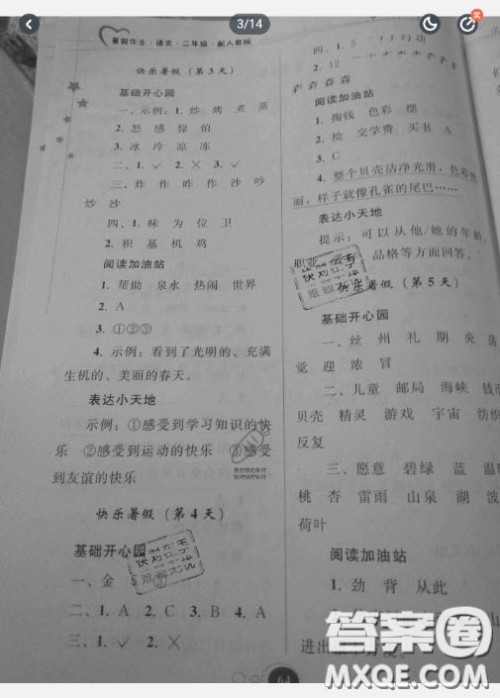 3/14
暑假作业·语文·二年级·配人教版
快乐暑假（第3天）
基础开心园
一、示例：1. 炒 烤 煮 蒸
2. 怒 感 惊 怕
3. 冰 冷 凉 冻
二、1. ✓ 2. ✕ 3. ✓
三、炸 作 昨 作 沙 吵
炒 沙
四、1. 味 为 位 卫
2. 积 基 机 鸡
阅读加油站
1. 帮助 泉水 热闹 世界
2. A
3. ①②③
4. 示例：看到了光明的、充满
生机的、美丽的春天。
表达小天地
示例：①感受到学习知识的快
乐 ②感受到运动的快乐 ③感受
到友谊的快乐
快乐暑假（第4天）
基础开心园
一、金
二、1. A 2. C 3. B 4. A
三、1. ✓ 2. ✕
四、1. 5
2. 12
森 森 森
阅读加油站
1. 掏钱 色彩 摆
2. 捡 交学费 买书 A
3. C
4. 整个贝壳洁净光滑，色彩
丽，样子就像孔雀的尾巴……
表达小天地
提示：可以从他/她的年龄、
职业 品格等方面回答。
快乐暑假（第5天）
基础开心园
一、丝 州 礼 期 炎 荡
觉 迎 浓 冒
二、儿童 邮局 海峡 钱
贝壳 精灵 游戏 宇宙 纺织
反复
三、愿意 碧绿 蓝 温
桃 杏 雷雨 山泉 湖 波
荷叶
阅读加油站
1. 劲 背 从此
进出
64
答案圈
MXQE.COM